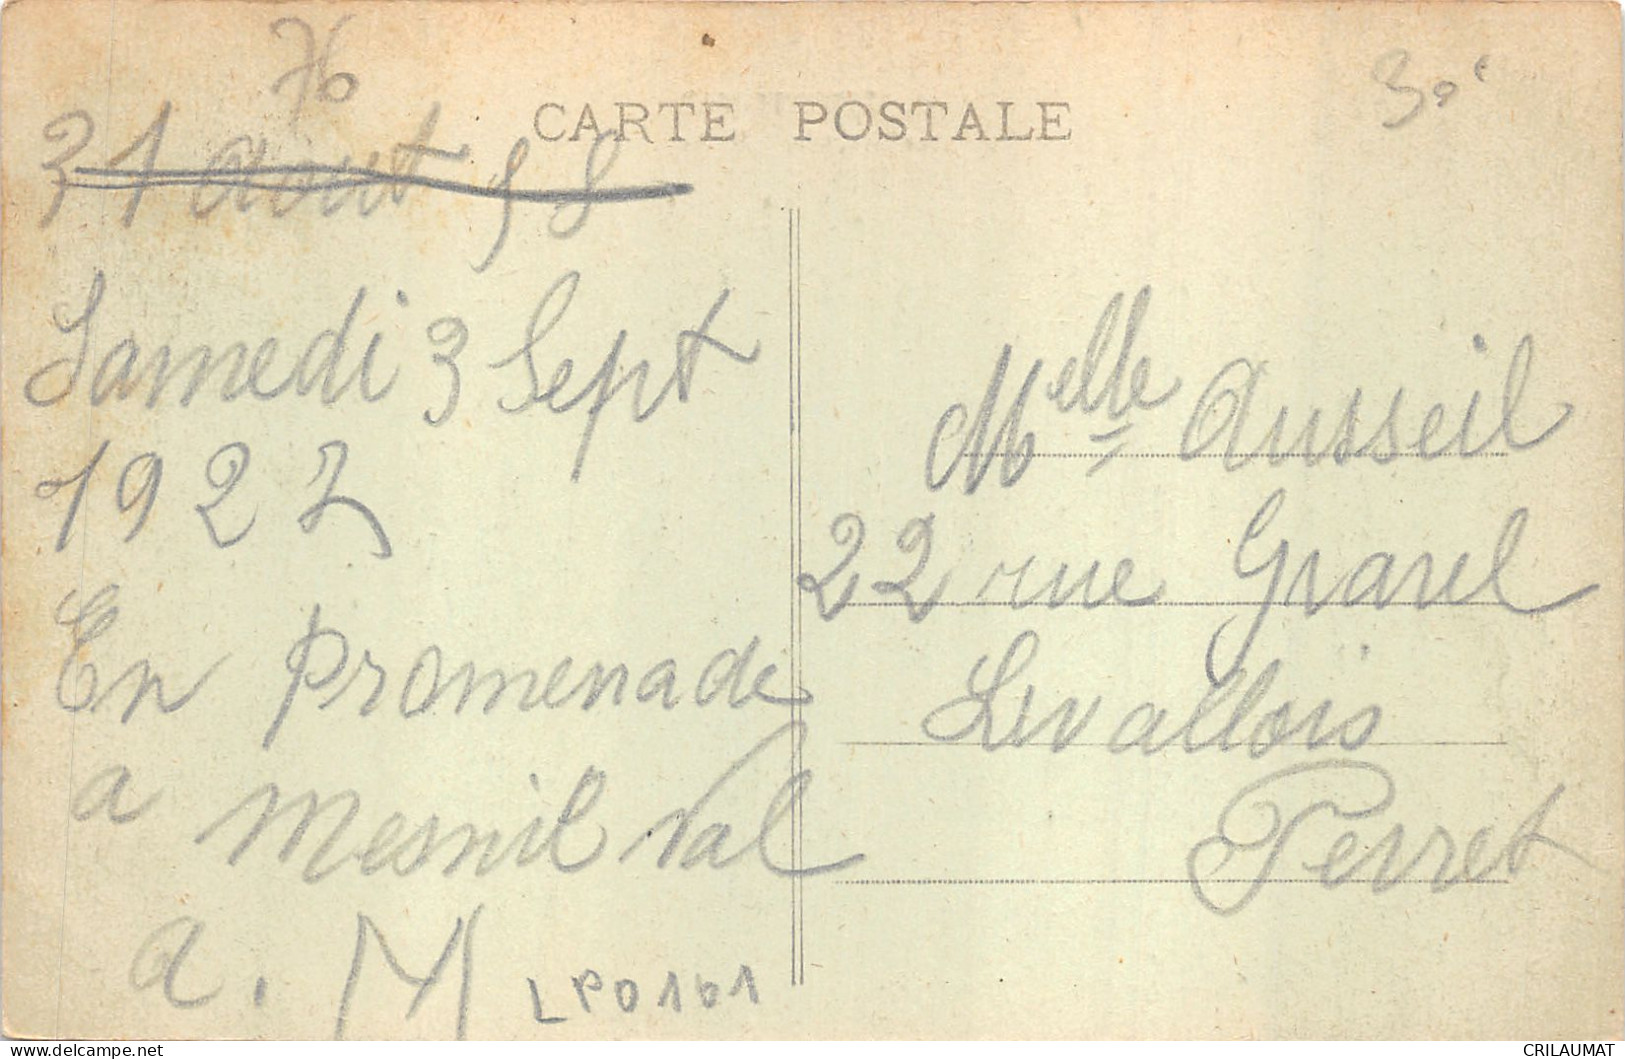 76
CARTE POSTALE
30c
31 aout
Samedi 3 Sept
1927
En promenade
a Mesnil Val
a. M
LPO161
Melle Ausseil
22 rue Gravel
Levallois
Perret
www.delcampe.net
CRILAUMAT